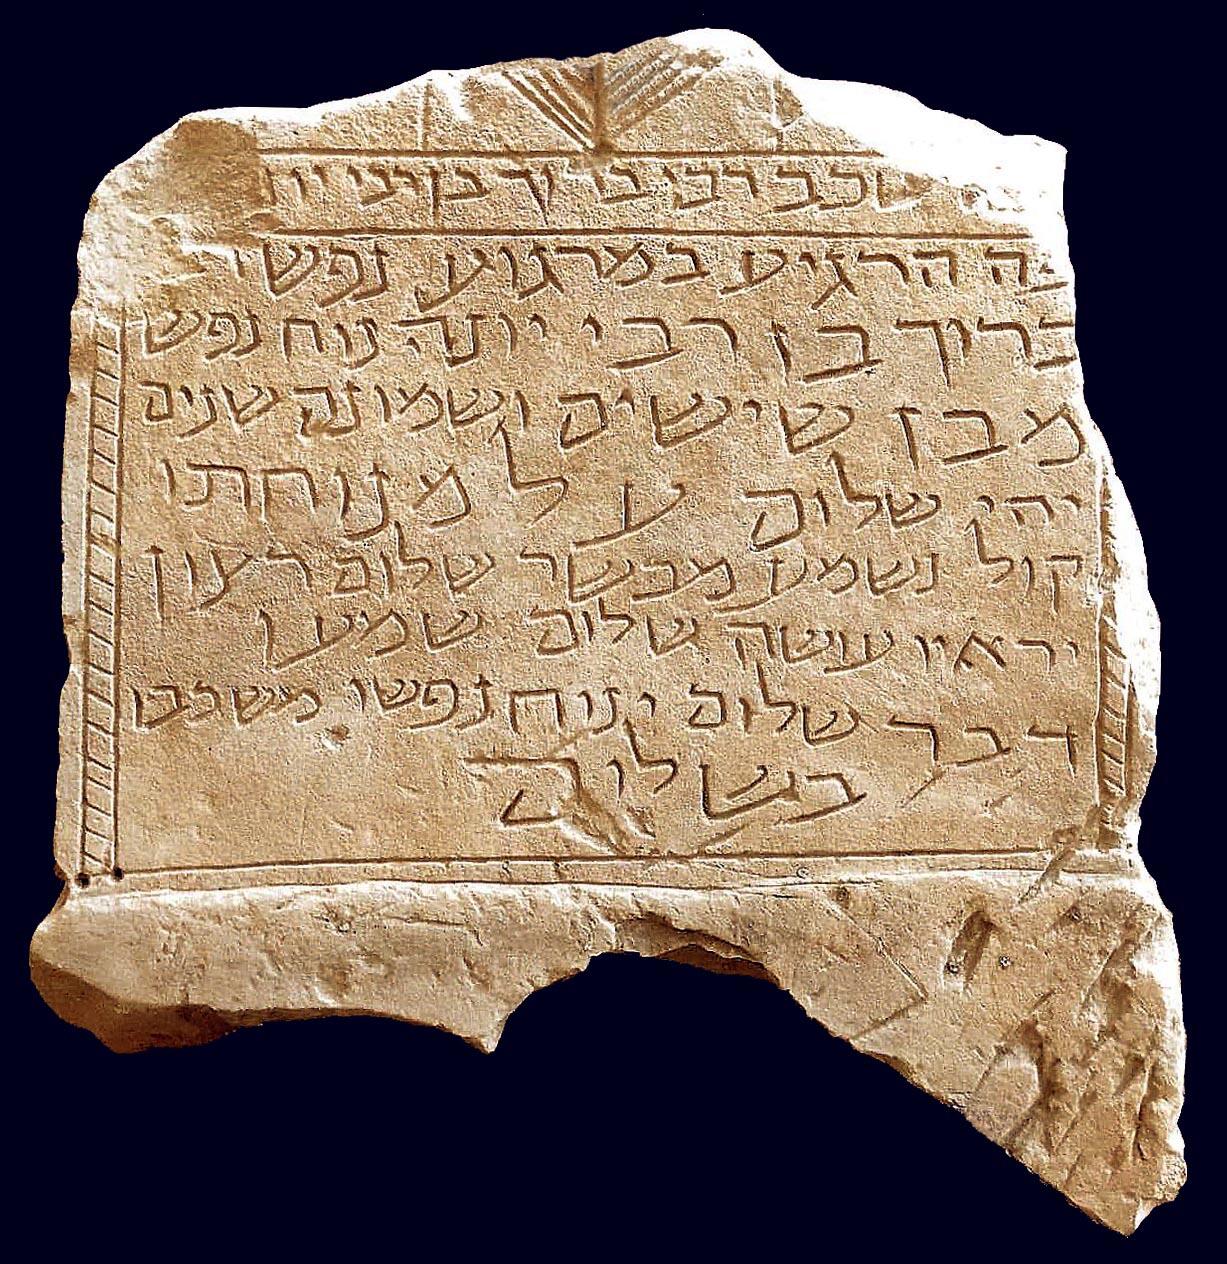 שכב רבי ברוך בן רבי
פה הרגיע במרגוע נפש
ברוך בן רבי יונה נוח נפש
מבן שישים ושמונה שנים
יהי שלום על מנוחתו
קול נשמע מבשר שלום רצון
יראיו עושה שלום שמיען
דבר שלום ינוח נפשו משכבו
בשלום